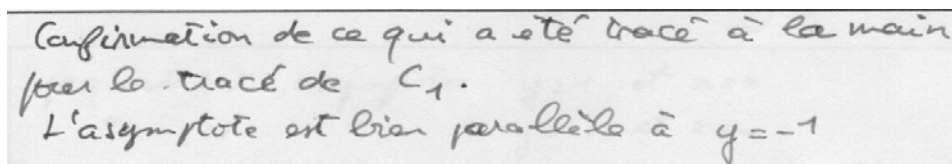 Confirmation de ce qui a été tracé à la main
pour le tracé de C₁.
L'asymptote est bien parallèle à y = -1